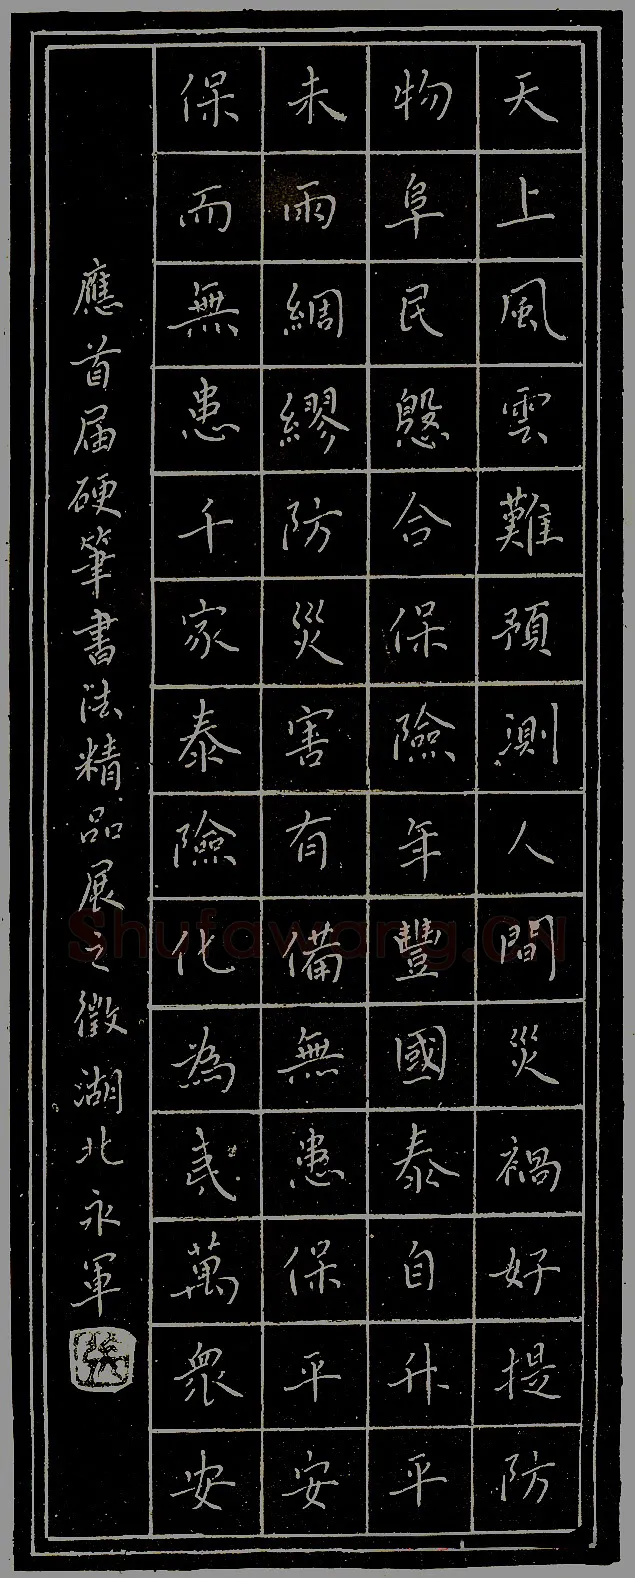 天上風雲難預測人間災禍好提防
物阜民慇合保險年豐國泰自升平
未雨綢繆防災害有備無患保平安
保而無患千家泰險化為夷萬衆安
應首届硬筆書法精品展之徵湖北永軍
張
Shufawang.CN